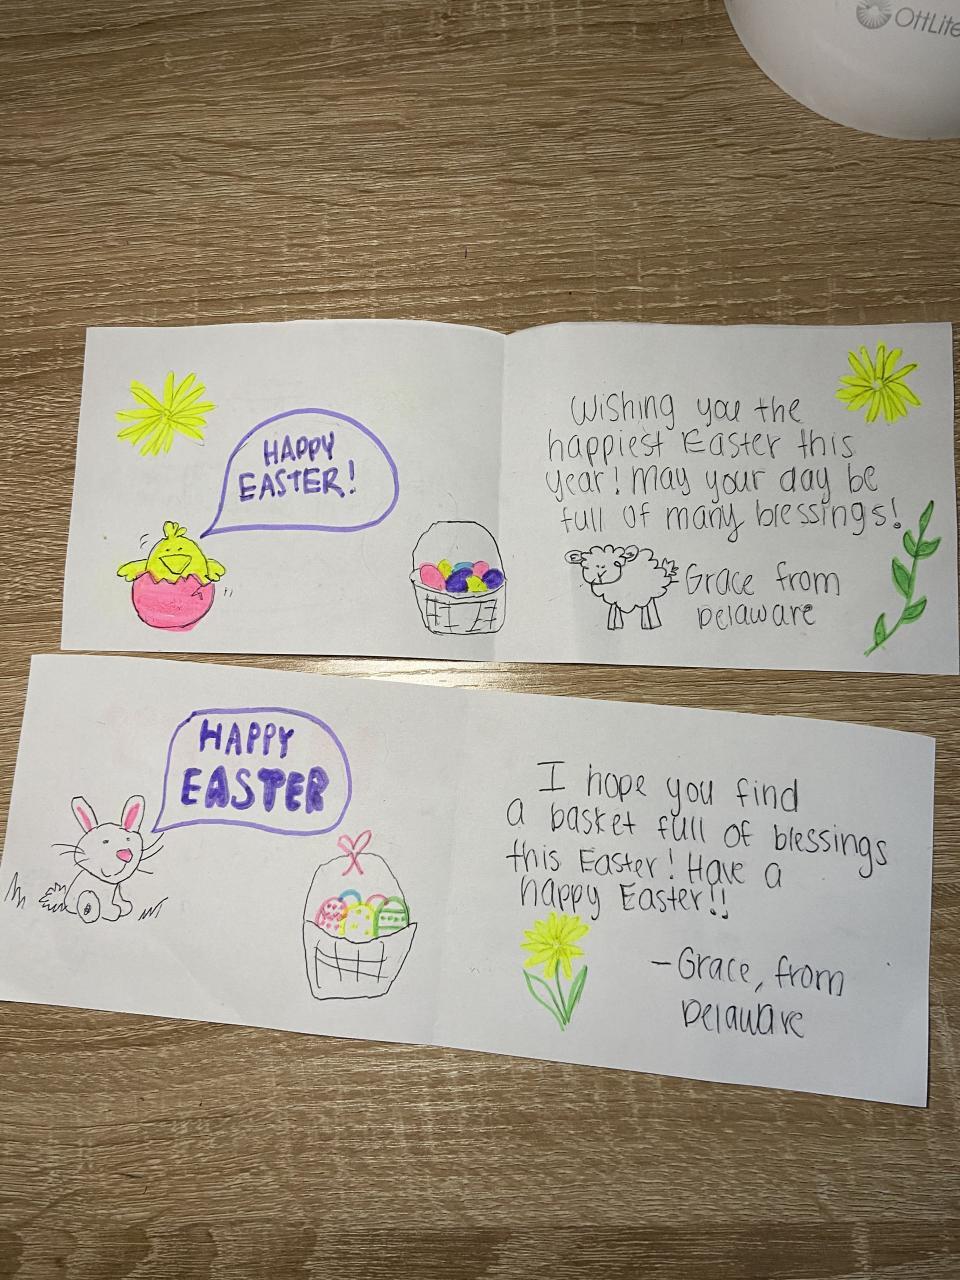 OttLite
HAPPY
EASTER!
Wishing you the
happiest Easter this
year! May your day be
full of many blessings!
Grace from
Delaware
HAPPY
EASTER
I hope you find
a basket full of blessings
this Easter! Have a
happy Easter!!
-Grace, from
Delaware